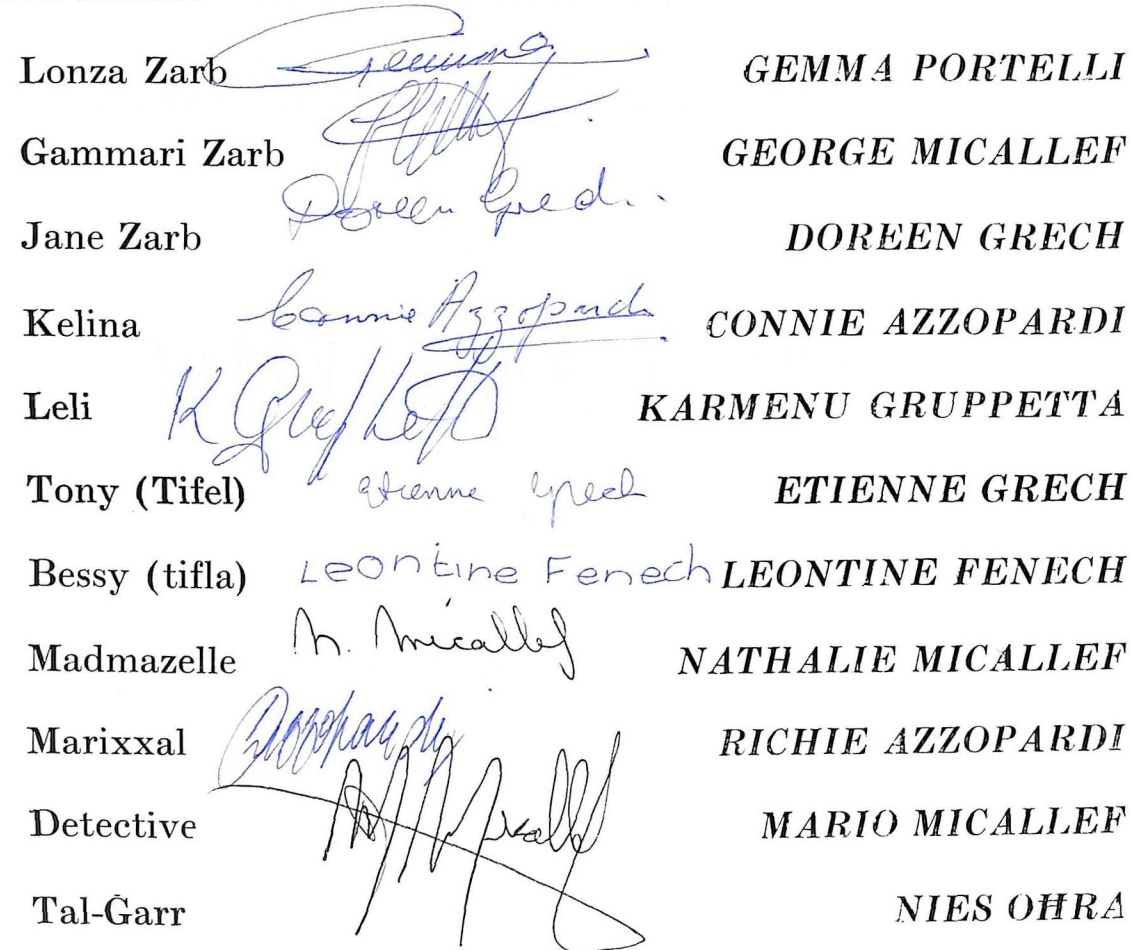 Lonza Zarb Gemma GEMMA PORTELLI
Gammari Zarb GEORGE MICALLEF
Jane Zarb Doreen Grech DOREEN GRECH
Kelina Connie Azzopardi CONNIE AZZOPARDI
Leli K Gruppetta KARMENU GRUPPETTA
Tony (Tifel) Etienne Grech ETIENNE GRECH
Bessy (tifla) Leontine Fenech LEONTINE FENECH
Madmazelle N. Micallef NATHALIE MICALLEF
Marixxal Azzopardi RICHIE AZZOPARDI
Detective M Micallef MARIO MICALLEF
Tal-Ġarr NIES OĦRA